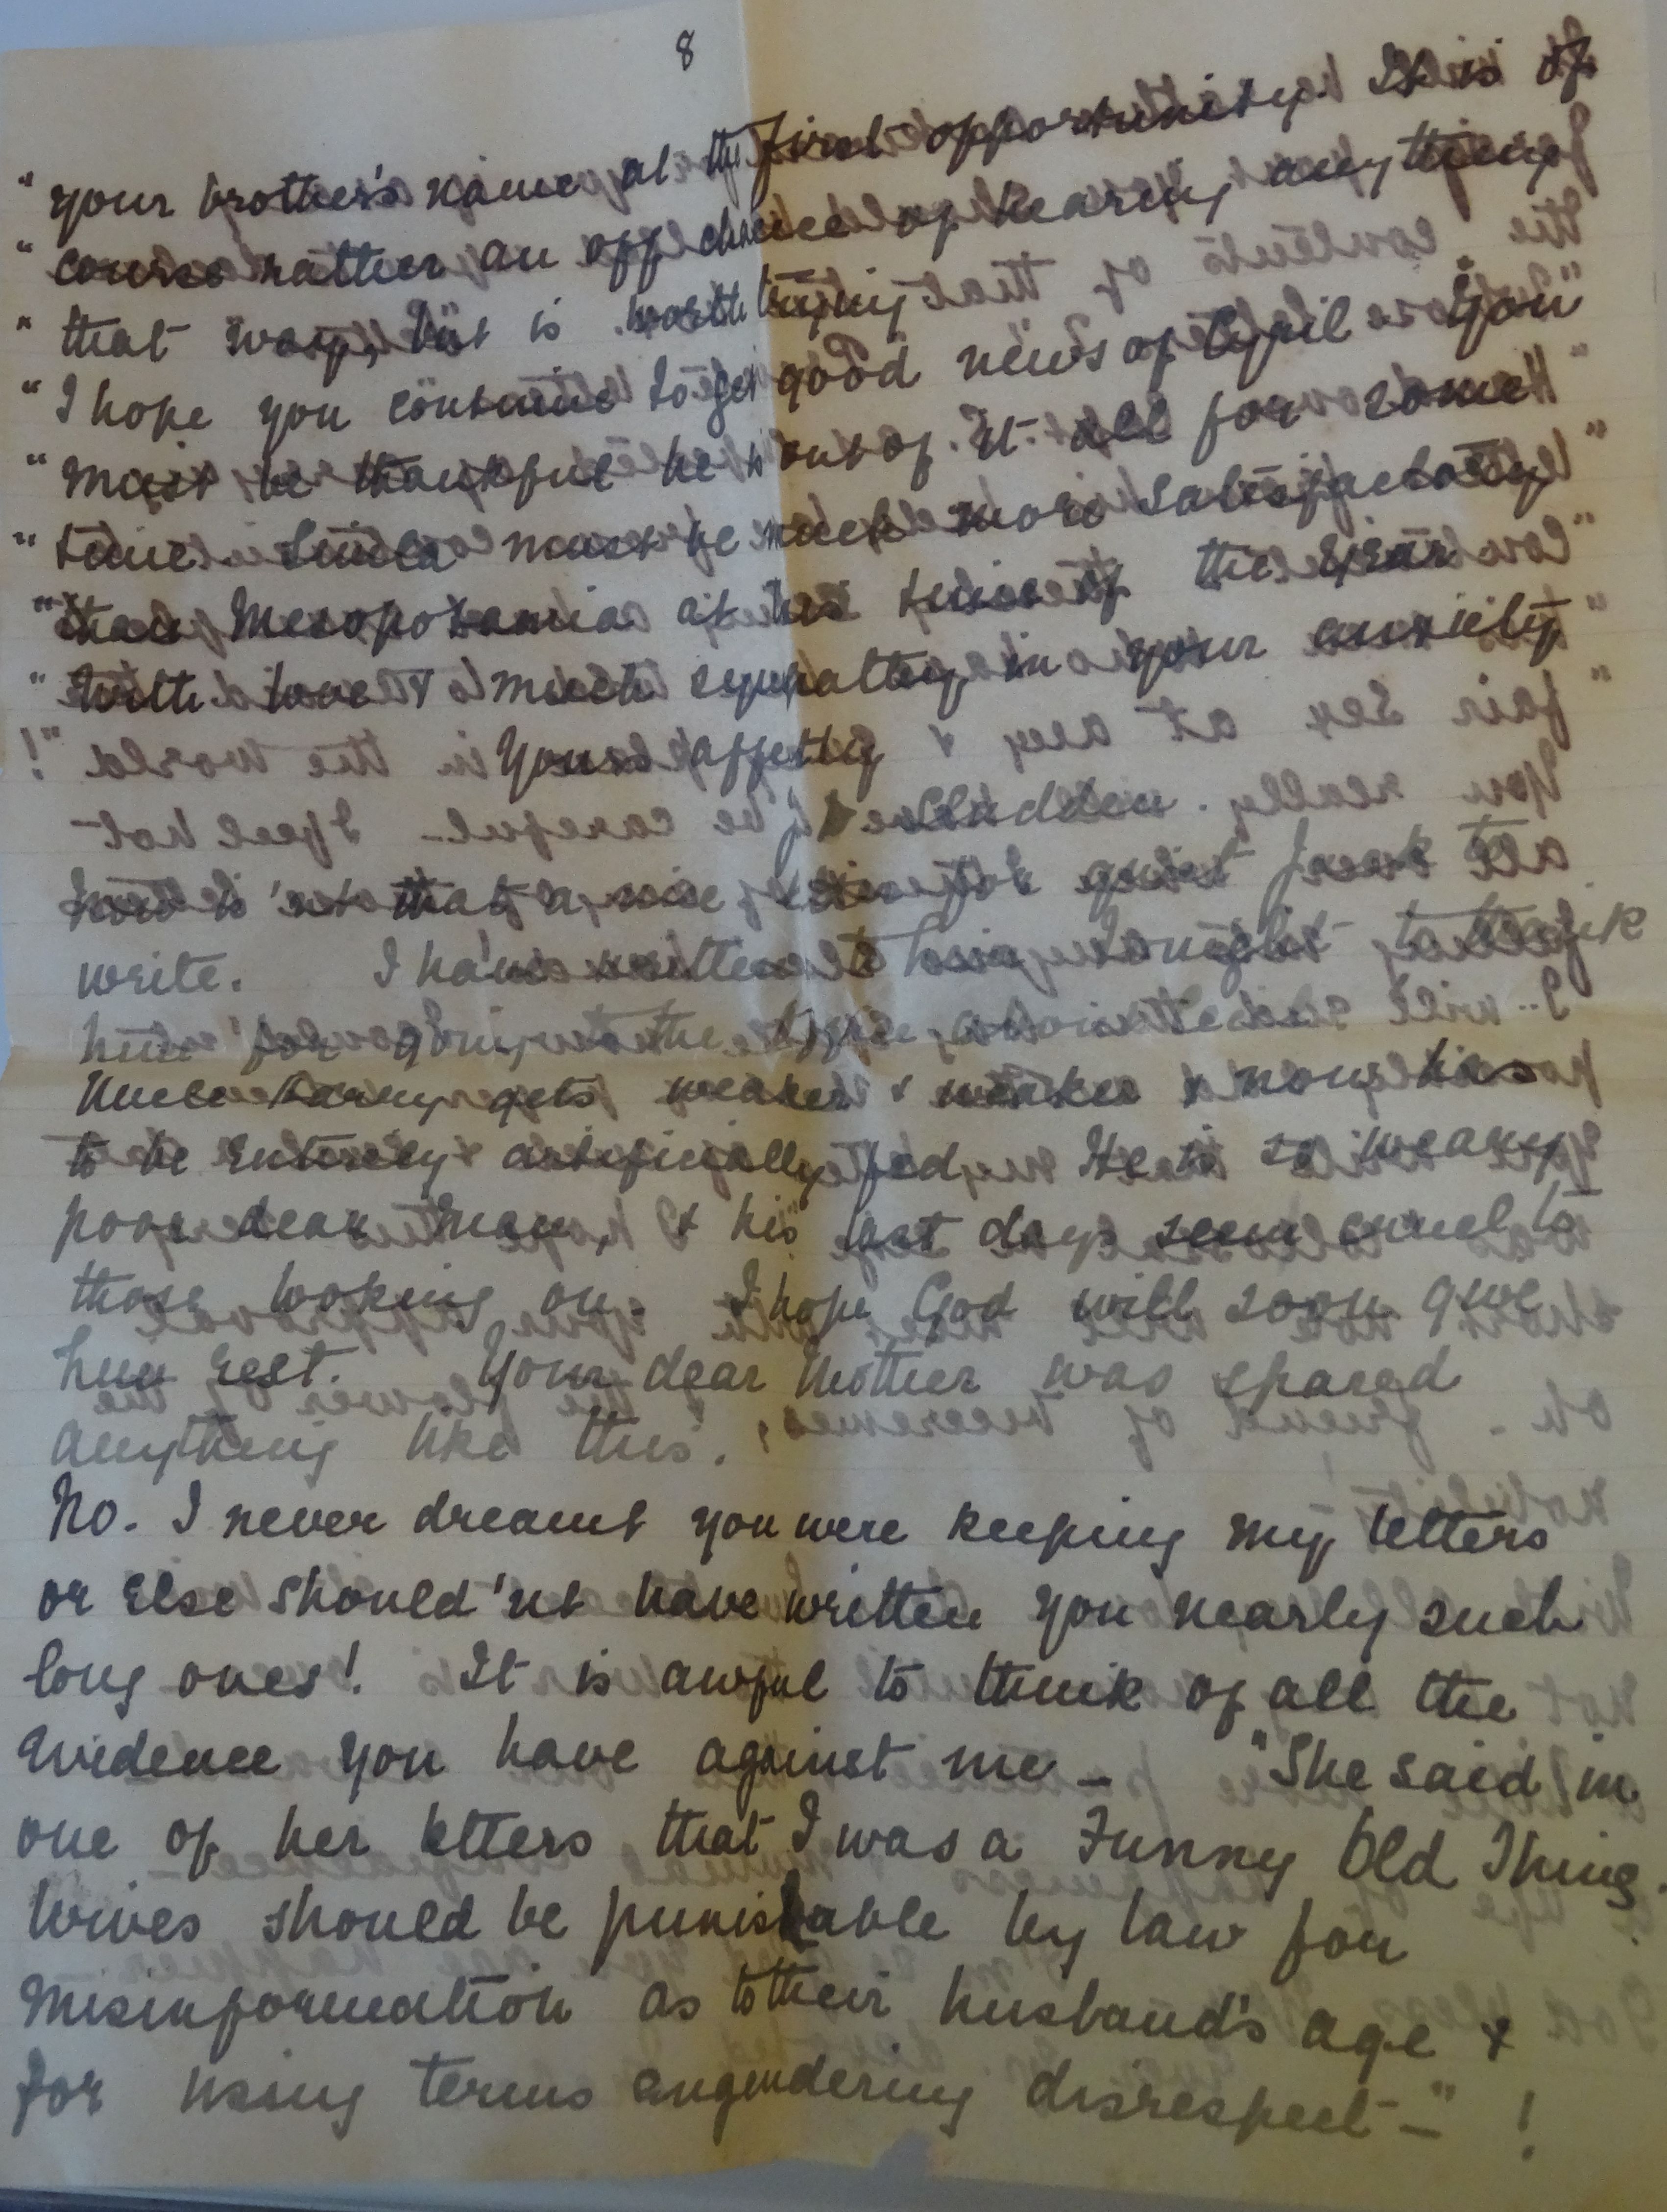 8
"your brother's name at the first opportunity. It is of
"course rather an off chance of hearing anything
"that way, but is worth trying
"I hope you continue to get good news of Cyril. You
"must be thankful he is out of it all for some
"time. Simla must be much more satisfactory
"than Mesopotamia at this time of the year.
"With love & much sympathy in your anxiety
Yours affectly
Now is'nt that a nice letter
write. I have written to him I ought to thank
him for going to the
Uncle Harry gets weaker & weaker & now has
to be entirely artificially fed. He is so weary
poor dear man, & his last days seem cruel to
those looking on. I hope God will soon give
him rest. Your dear Mother was spared
anything like this.
No. I never dreamt you were keeping my letters
or else should'nt have written you nearly such
long ones! It is awful to think of all the
evidence you have against me – "She said in
one of her letters that I was a Funny Old Thing.
Wives should be punishable by law for
misinformation as to their husband's age &
for using terms engendering disrespect –" !